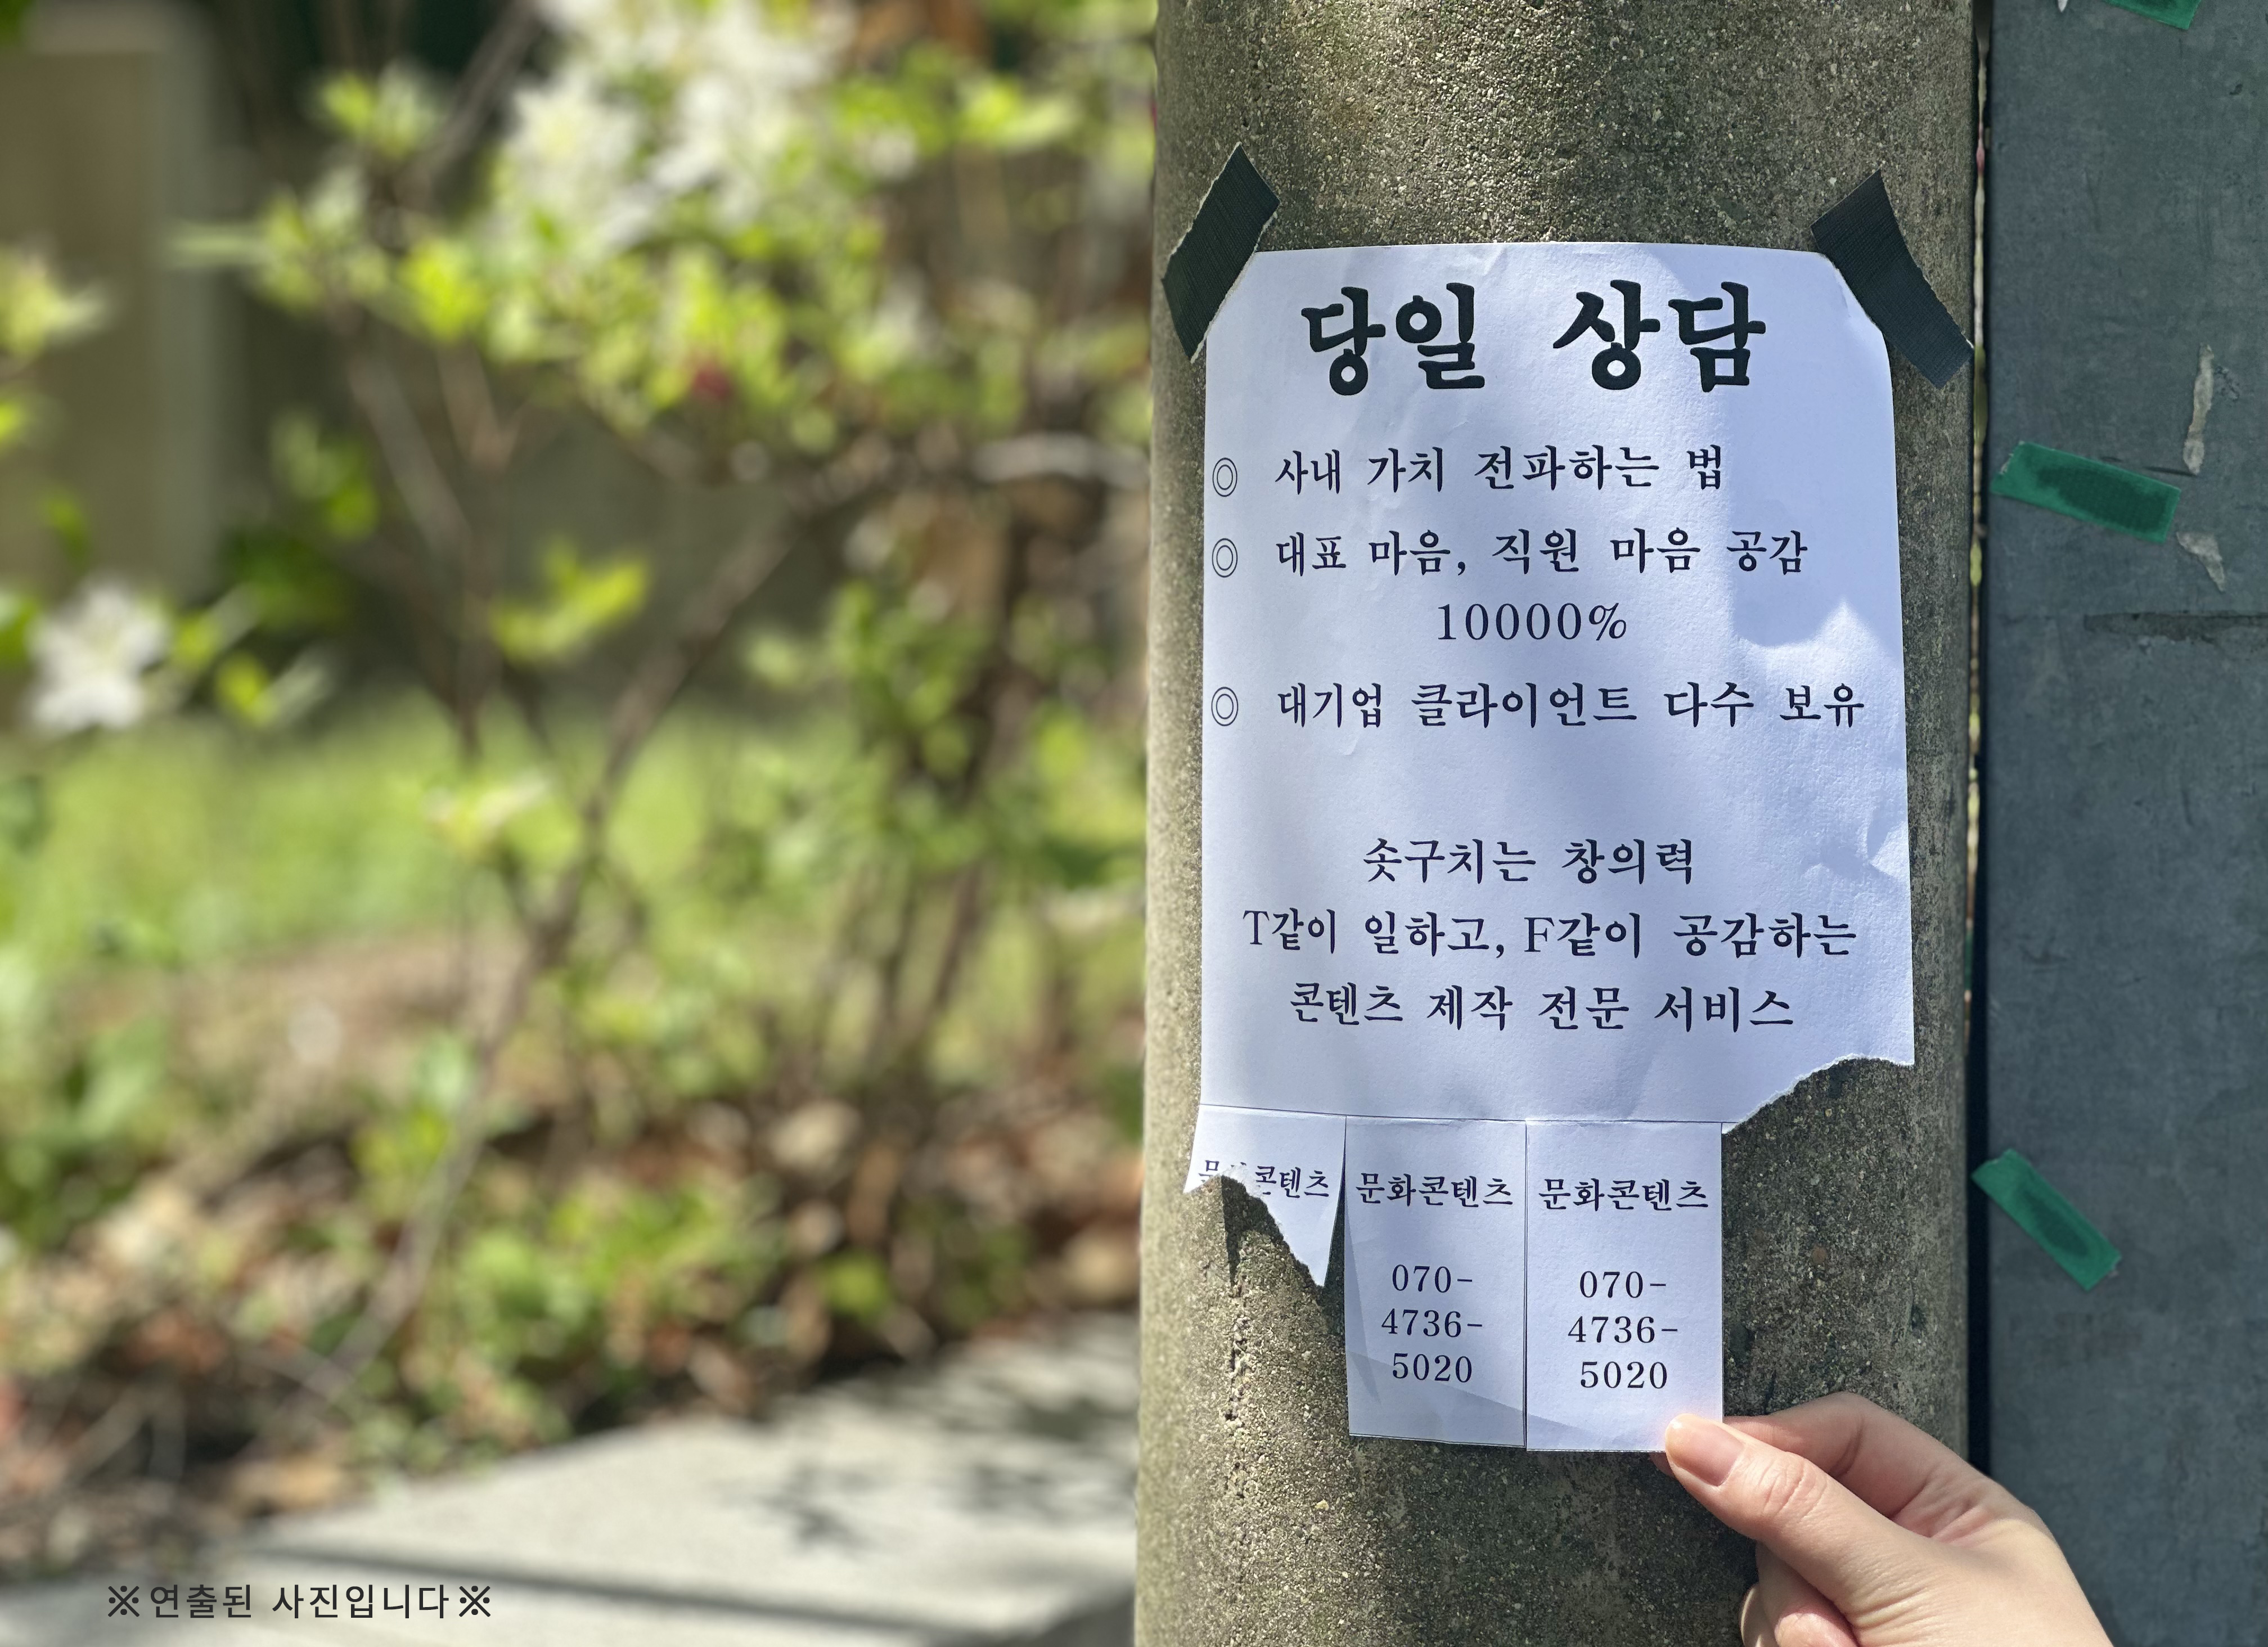 당일 상담
◎ 사내 가치 전파하는 법
◎ 대표 마음, 직원 마음 공감
10000%
◎ 대기업 클라이언트 다수 보유
솟구치는 창의력
T같이 일하고, F같이 공감하는
콘텐츠 제작 전문 서비스
콘텐츠
문화콘텐츠
070-
4736-
5020
문화콘텐츠
070-
4736-
5020
※연출된 사진입니다※